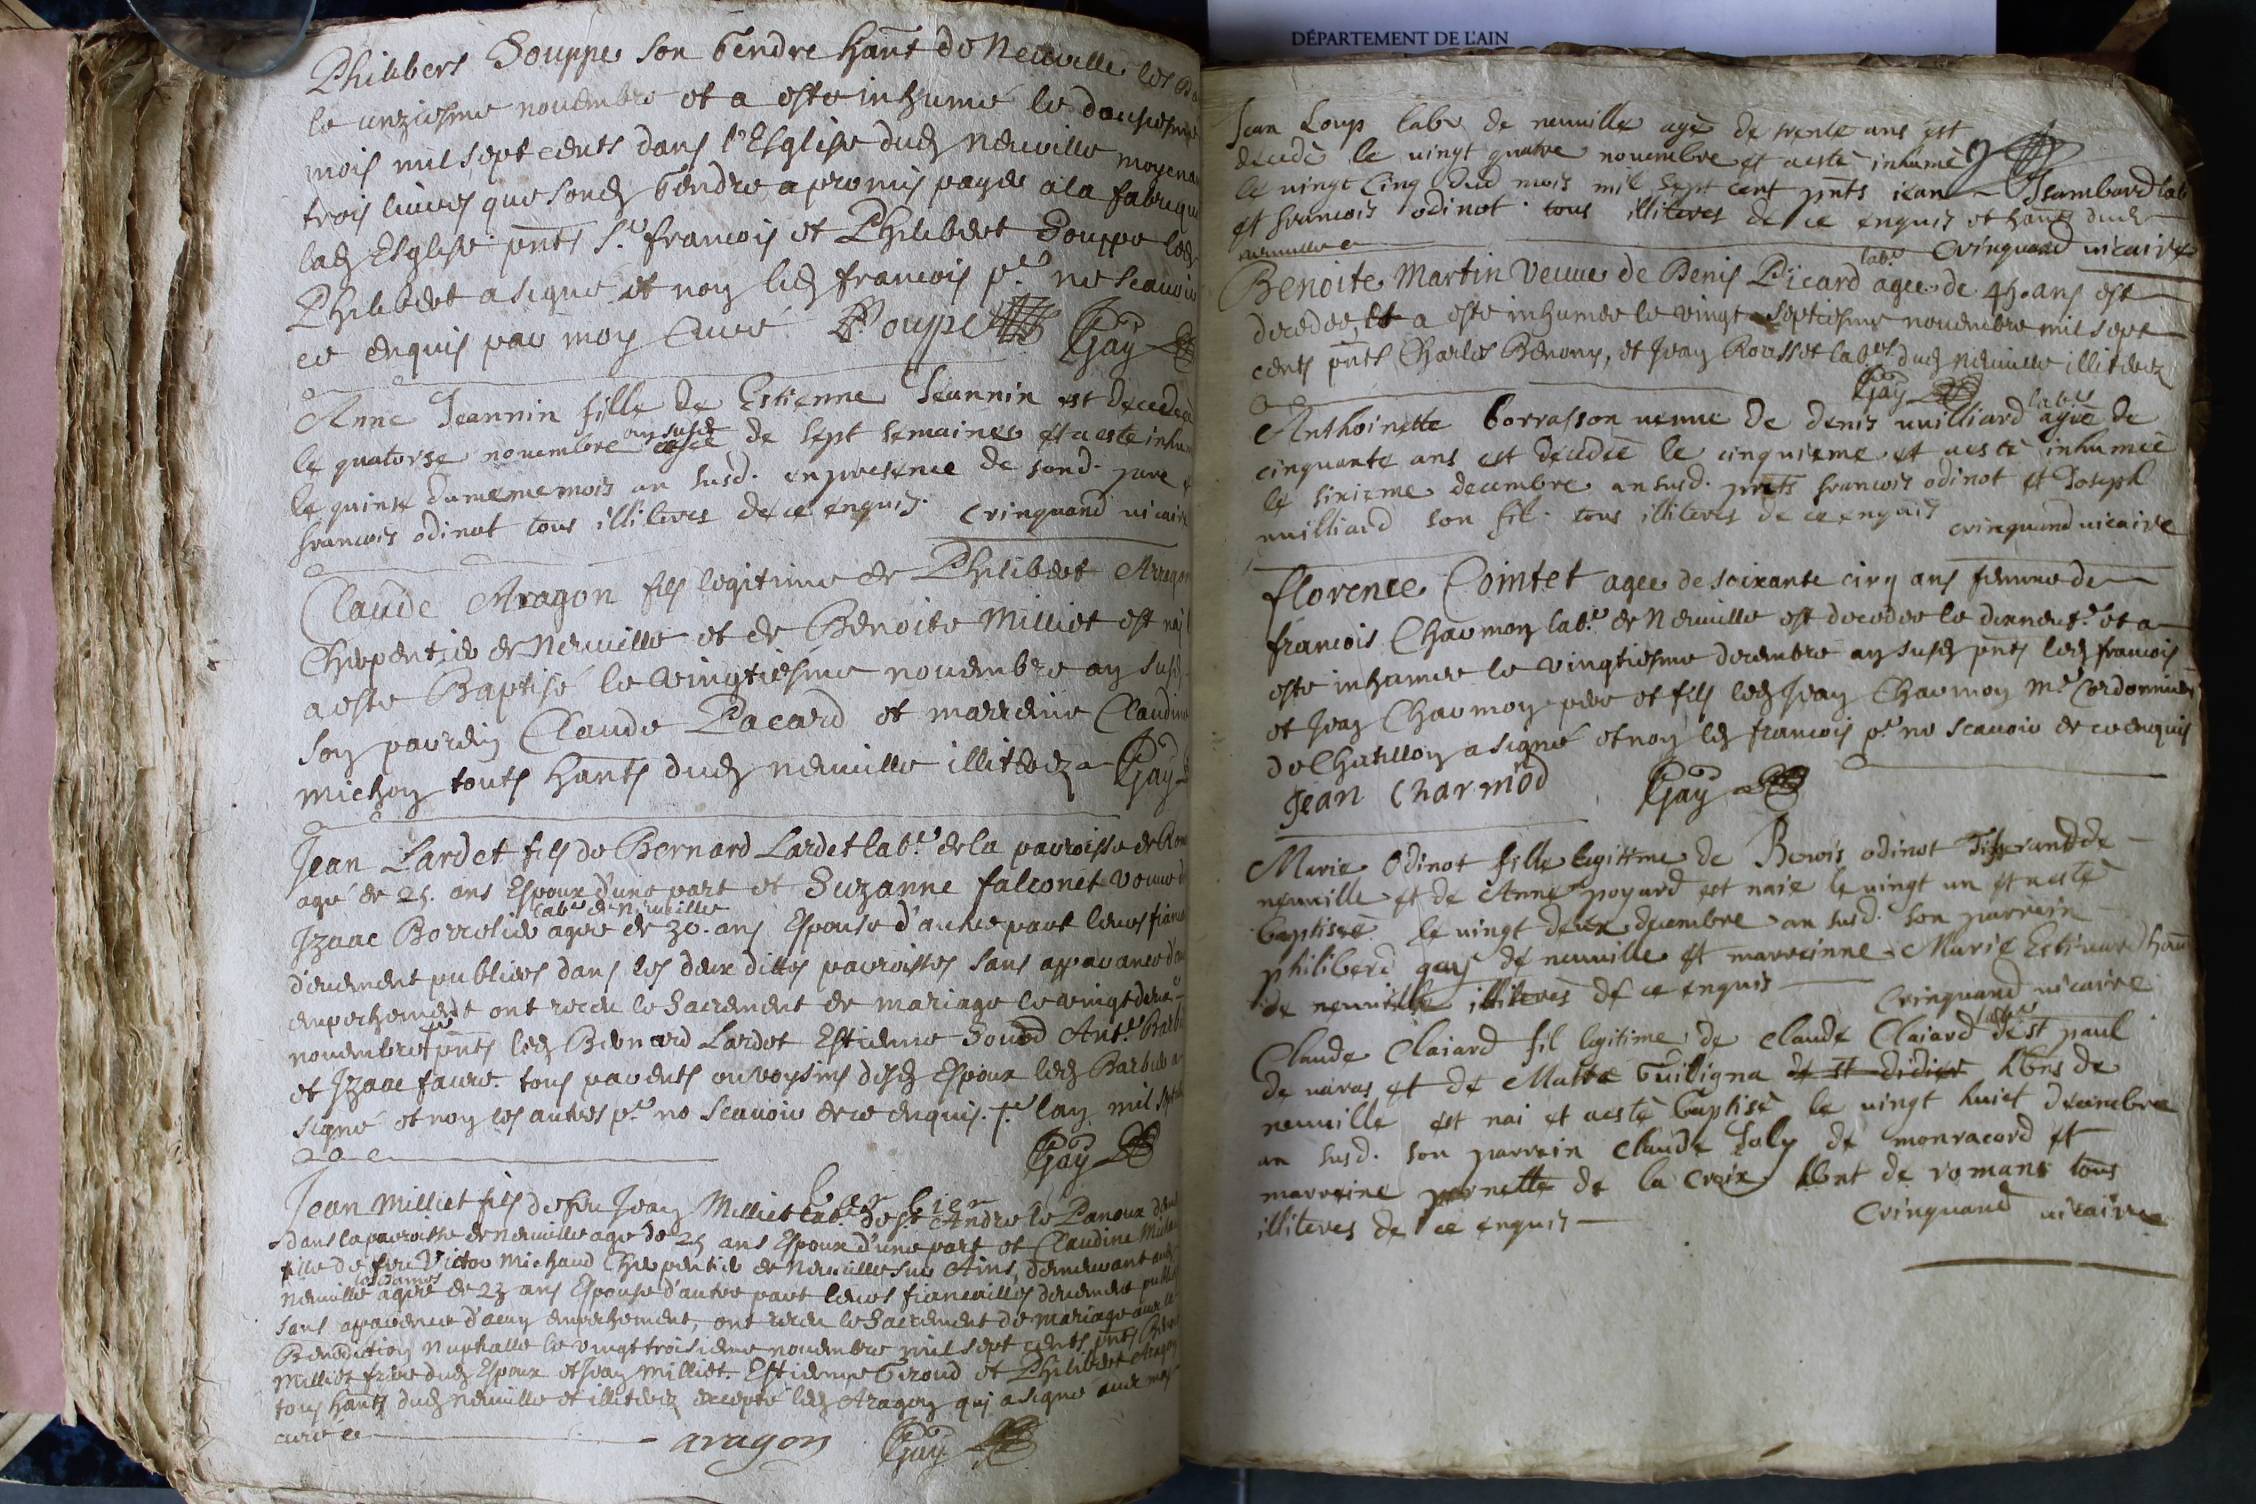 Philibert Souppe son Gendre hant de Neuville les
le unziesme novembre et a este inhumé le douziesme
mois mil sept cents dans l'Esglise dud neuville moyena
trois livres que sond Gendre a promis payer a la fabrique
lad Esglise pnts Sr francois et Philibert Souppe led
Philibert a signé et non led francois pr ne scavoir
ce enquis par moy Curé P Souppe Gay
Anne Jeannin fille de Estienne Jeannin est decedee
le quatorse novembre an susd agee de sept semaines et a este inhu
le quinse du meme mois an susd. en presence de sond. pere et
francois odinot tous illiteres de ce enquis. Crinquand vicaire
Claude Aragon fils legitime de Philibert Arragon
Chepentier de Neuville et de Benoite Milliet est nai
a este Baptisé le vingtiesme novembre an susd
son parrein Claude Pacard et marreine Claudine
michon touts hants dud neuville illiterez Gay
Jean Lardet fils de Bernard Lardet labr de la parroisse de Rom
agé de 25. ans Espoux d'une part et Suzanne falconet veuve d
Izaac Borrelier labr de Neuville agee de 30. ans Espouse d'autre part leurs fianc
d'euement publiees dans les deux dittes parroisses sans apparance d'au
empechement ont receu le Sacrement de mariage le vingt deux
novembre pnts led Bernard Lardet Estienne Soud Ant. Barbi
et Izaac faure. tous parents ou voysins disd Espoux led Barbier a
signé et non les autres pr ne scavoir de ce enquis. lan mil sept
Gay
Jean Milliet fils de feu Jean Milliet labr de st Andre le Panoux dem
dans la parroisse de neuville age de 25 ans Espoux d'une part et Claudine Mich
fille de feu Victor Michaud Chepentier de Neuville sur Ains, demeurant aud
Neuville les Dames agee de 23 ans Espouse d'autre part leurs fiancailles deuement publi
sans apparence d'aucun empechement, ont receu le Sacrement de mariage avec la
Benediction nuptialle le vingt troisieme novembre mil sept cents pnts
Milliet frere dud Espoux et Jean Milliet Estienne Giroud et Philibert Aragon
tous hants dud neuville et illiterez excepté led Aragon qui a signé avec moy
curé
aragon Gay
DÉPARTEMENT DE L'AIN
Jean Loup labr de neuville agé de trente ans est
decedé le vingt quatre novembre et a esté inhumé
le vingt cinq dud mois mil sept cent pnts jean Isambard lab
et francois odinot. tous illiteres de ce enquis et hants dud
neuville Crinquand vicaire
Benoite Martin Veuve de Denis Picard labr agee de 45. ans est
decedee, et a este inhumee le vingt septiesme novembre mil sept
cents pnts Charles Benony, et Jean Rousset labrs dud Neuville illiterez
Gay
Anthoinette borrasson veuve de denis vuilliard labr agée de
cinquante ans est decedée le cinquieme et a esté inhumeé
le sixieme decembre an susd. pnts francois odinot et Joseph
vuilliard son fil. tous illiteres de ce enquis crinquand vicaire
florence Cointet agee de soixante cinq ans femme de
francois Charmon labr de Neuville est decedee le dixneufr et a
este inhumee le vingtiesme decembre an susd pnts led francois
et Jean Charmon pere et fils led Jean Charmon Me Cordonnier
de Chatillon a signé et non led francois pr ne scavoir de ce enquis
Jean Charmod Gay
Marie Odinot fille legittme de Benois odinot Tisserand de
neuville et de Anne poyard est naie le vingt un et a esté
baptiseé le vingt deux decembre an susd. son parrein
philiberd gay de neuville et marreinne Marie Estienne
de neuville illiteres de ce enquis Crinquand vicaire
Claude Claiard fil legitime de Claude Claiard labr de st paul
de varas et de Guiligna de st didier hbns de
neuville est nai et a esté baptisé le vingt huict decembre
an susd. son parrein Claude Joly de monracord et
marreine pernette de la Croix hbnt de romans tous
illiteres de ce enquis Crinquand vicaire